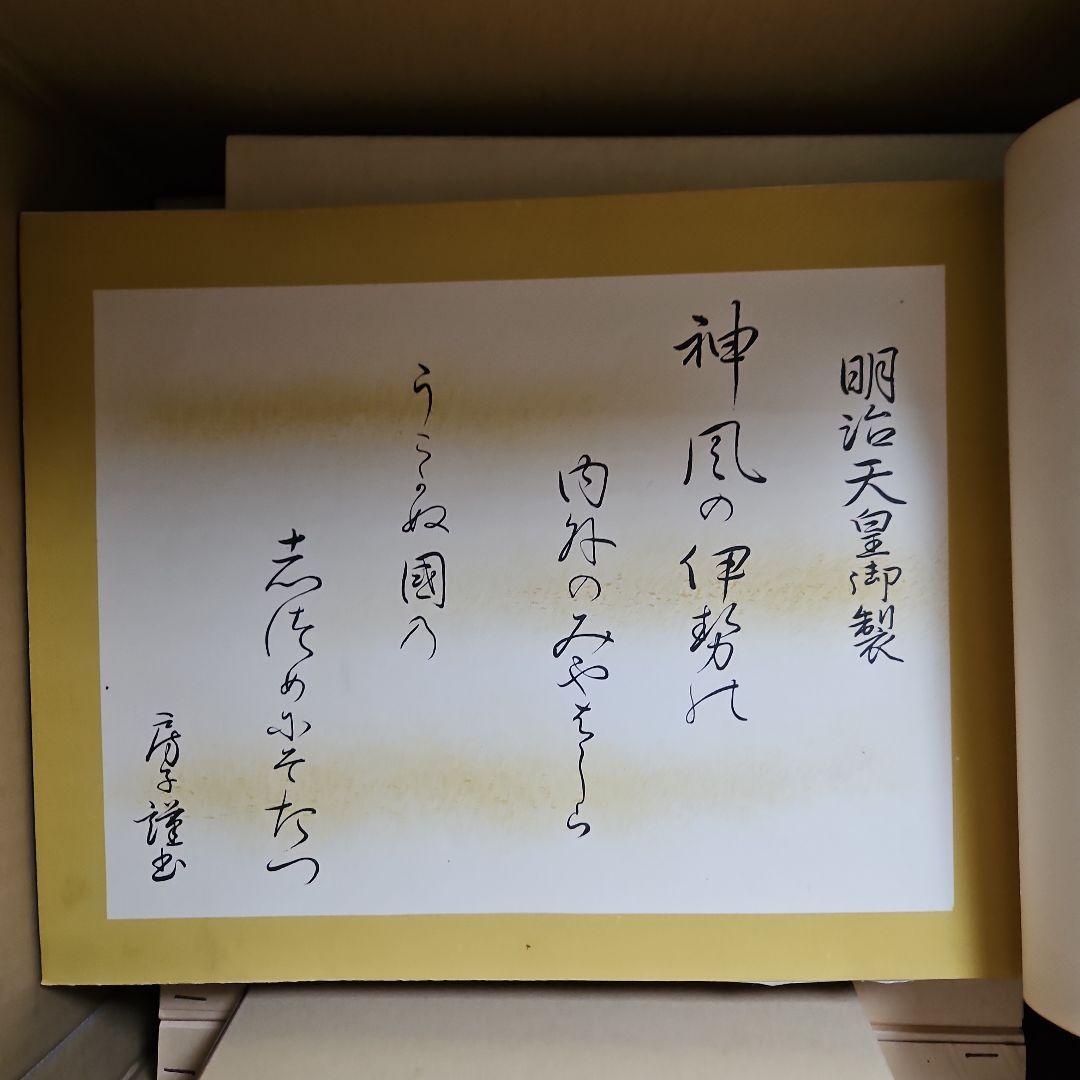 明治天皇御製
神風の伊勢の
内外のみやはしら
うこかぬ國の
志つめにそたつ
房子謹書